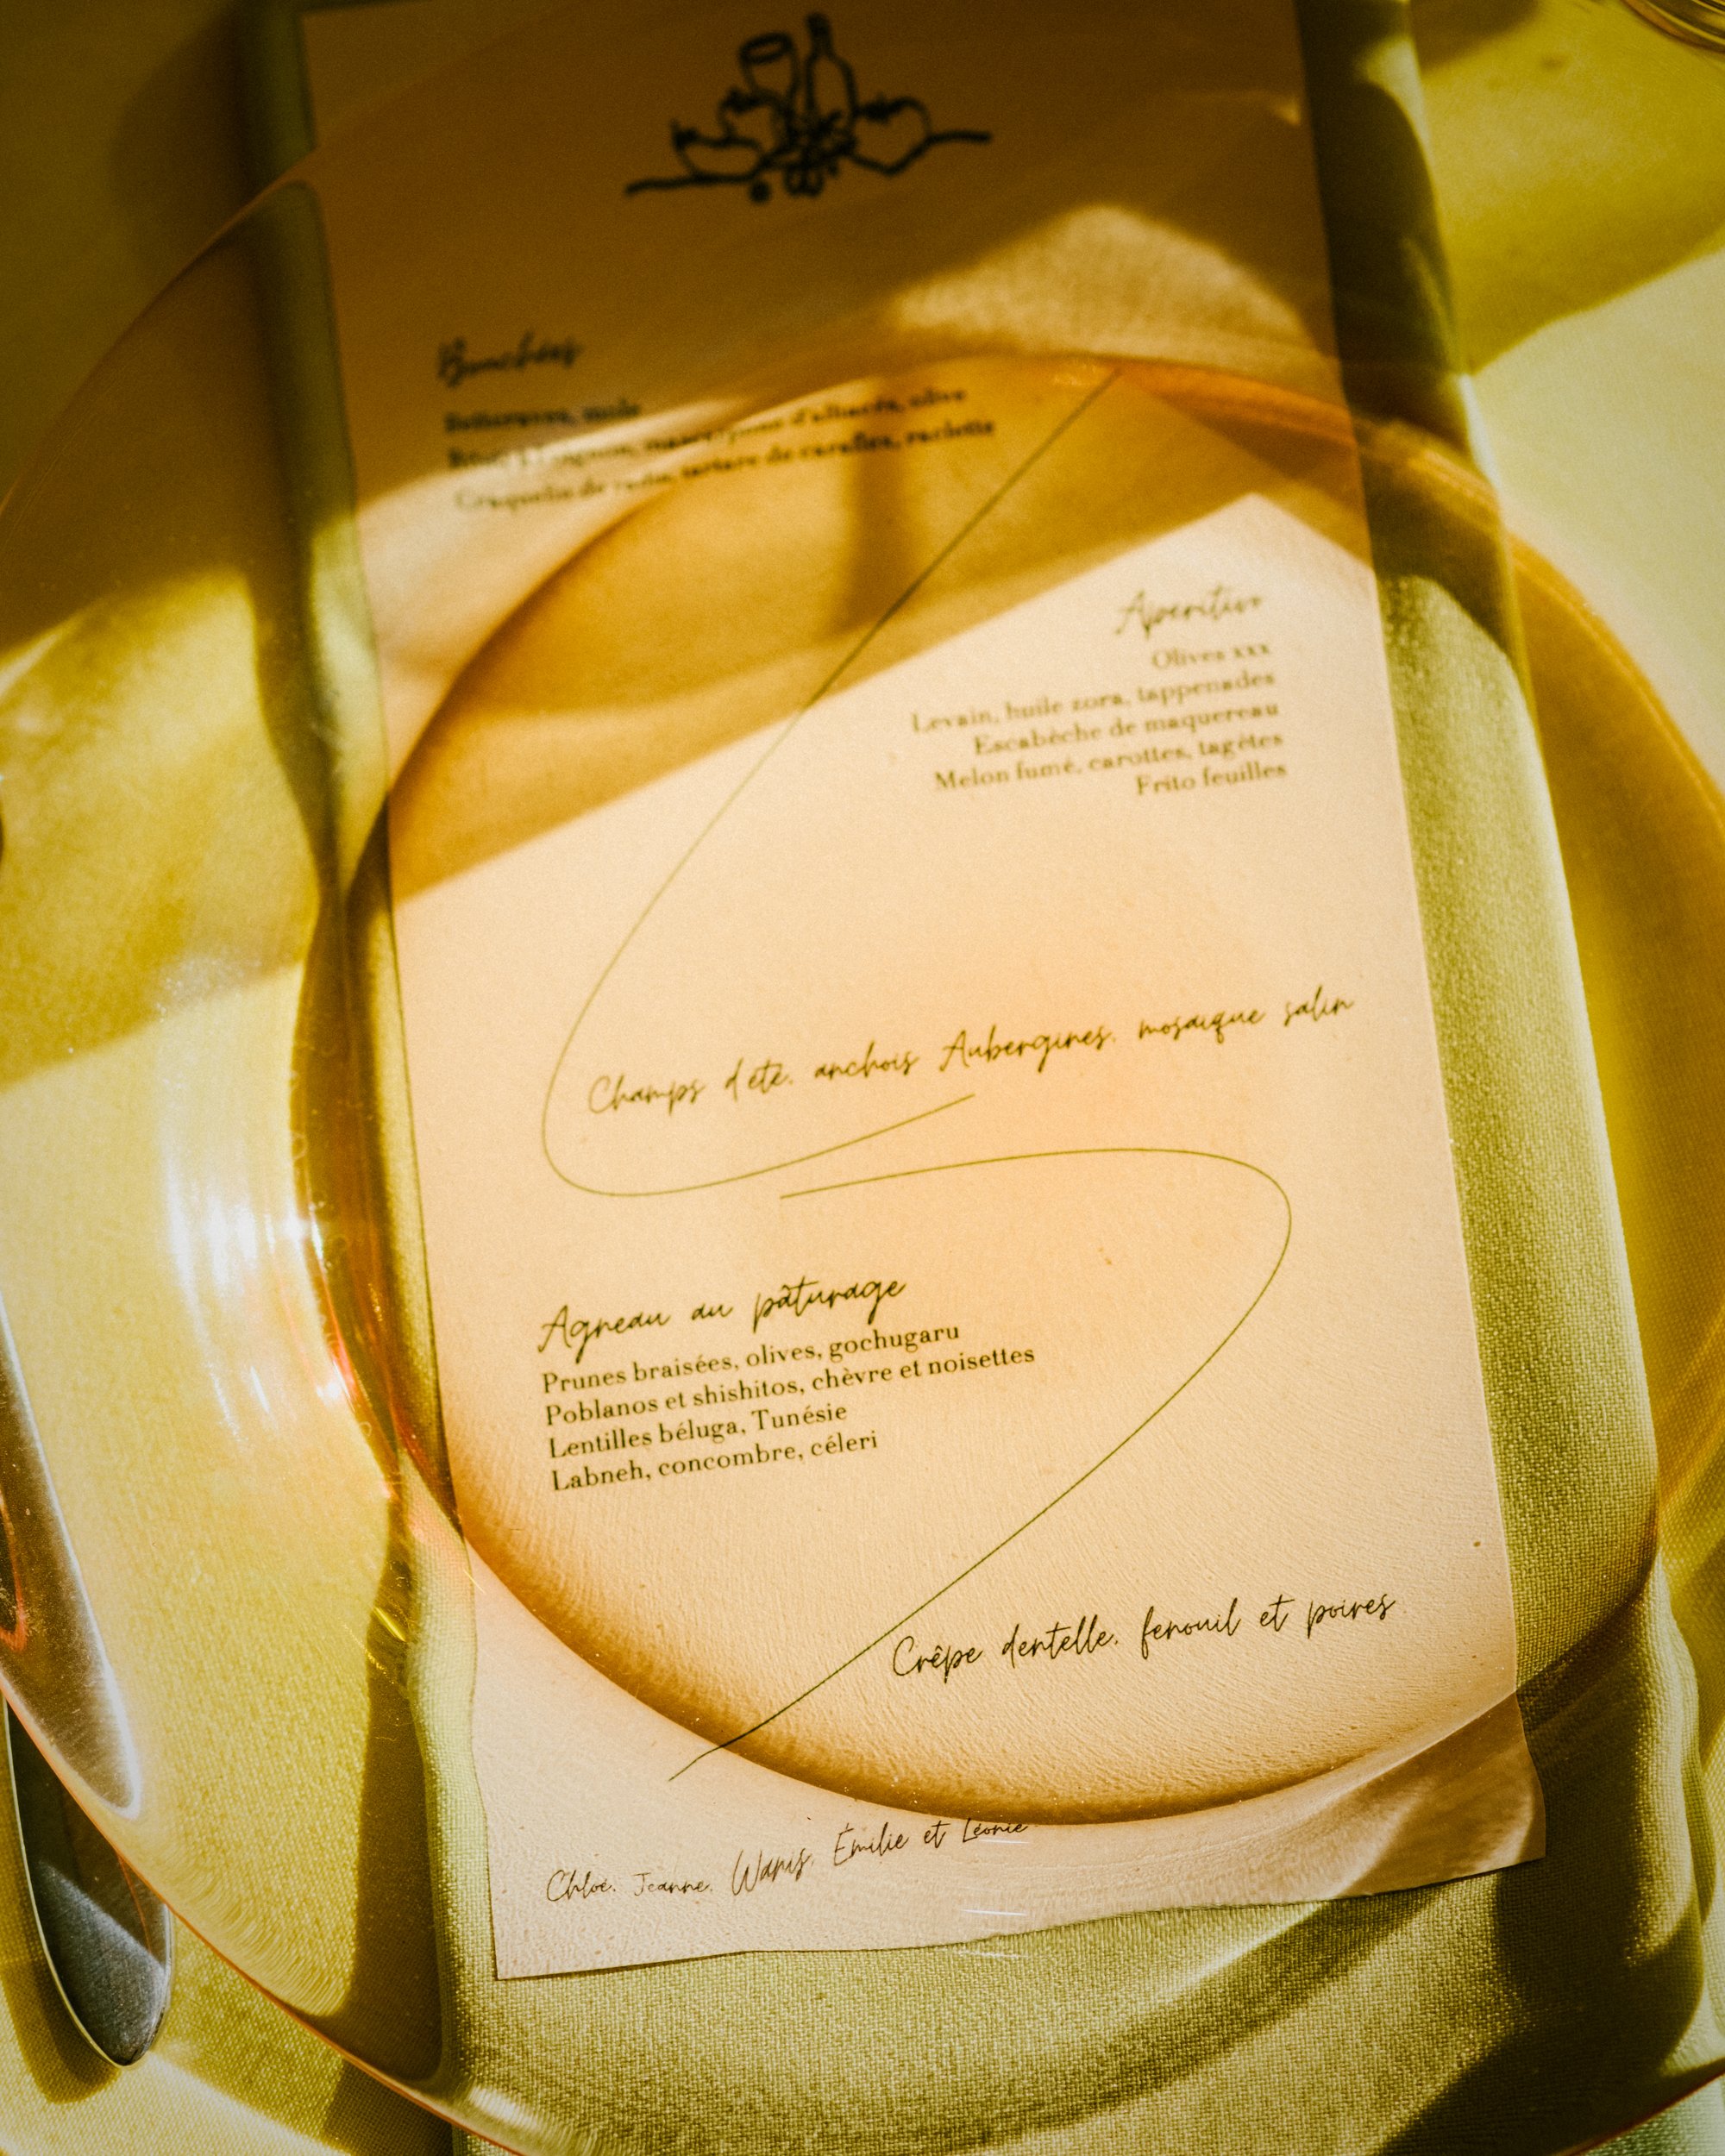 Bouchées
Betteraves, mole
d'allacés, olive
Craquelin de radis, tartare de caraflex, raclette
Aperitivo
Olives xxx
Levain, huile zora, tappenades
Escabèche de maquereau
Melon fumé, carottes, tagètes
Frito feuilles
Champs d'été, anchois Aubergines, mosaïque salin
Agneau au pâturage
Prunes braisées, olives, gochugaru
Poblanos et shishitos, chèvre et noisettes
Lentilles béluga, Tunésie
Labneh, concombre, céleri
Crêpe dentelle, fenouil et poires
Chloé, Jeanne, Wanis, Émilie et Léonie